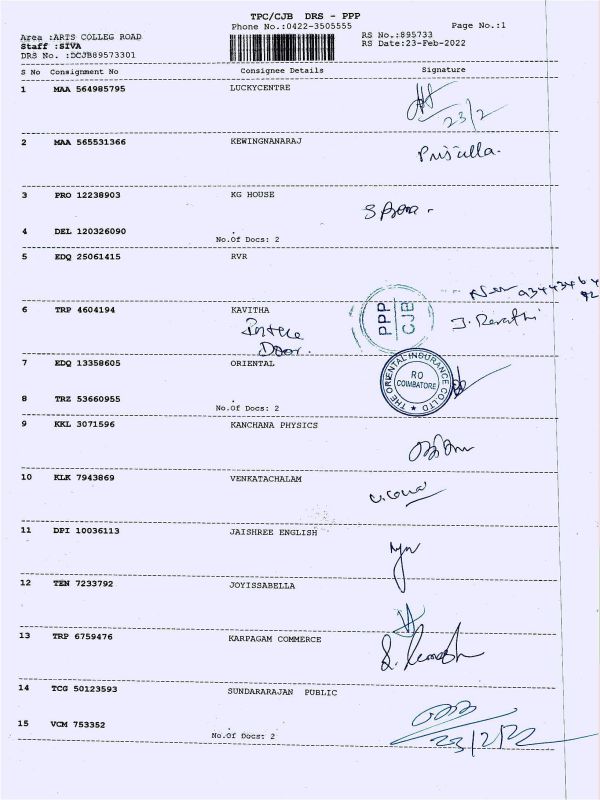 TPC/CJB DRS - PPP
Phone No.:0422-3505555
Page No.:1
Area :ARTS COLLEG ROAD
RS No.:895733
Staff :SIVA
RS Date:23-Feb-2022
DRS No. :DCJB89573301
S No Consignment No Consignee Details Signature
1 MAA 564985795 LUCKYCENTRE
23/2
2 MAA 565531366 KEWINGNANARAJ
Priscilla.
3 PRO 12238903 KG HOUSE
4 DEL 120326090
No.Of Docs: 2
5 EDQ 25061415 RVR
6 TRP 4604194 KAVITHA
PPP
CJB
J. Revathi
Door.
7 EDQ 13358605 ORIENTAL
THE ORIENTAL INSURANCE CO LTD
RO
COIMBATORE
8 TRZ 53660955
No.Of Docs: 2
9 KKL 3071596 KANCHANA PHYSICS
10 KLK 7943869 VENKATACHALAM
11 DPI 10036113 JAISHREE ENGLISH
12 TEN 7233792 JOYISSABELLA
13 TRP 6759476 KARPAGAM COMMERCE
14 TCG 50123593 SUNDARARAJAN PUBLIC
15 VCM 753352
No.Of Docs: 2
23/2/22